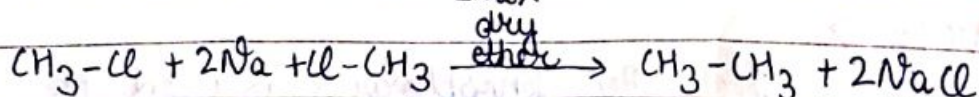 dry
CH3-Cl + 2Na + Cl-CH3 ether → CH3-CH3 + 2NaCl